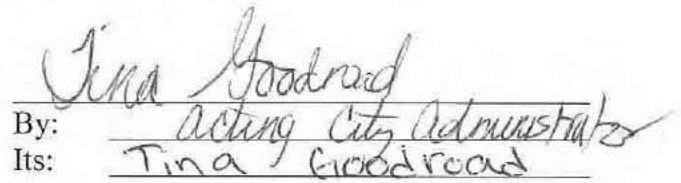 Tina Goodroad
By: Acting City Administrator
Its: Tina Goodroad